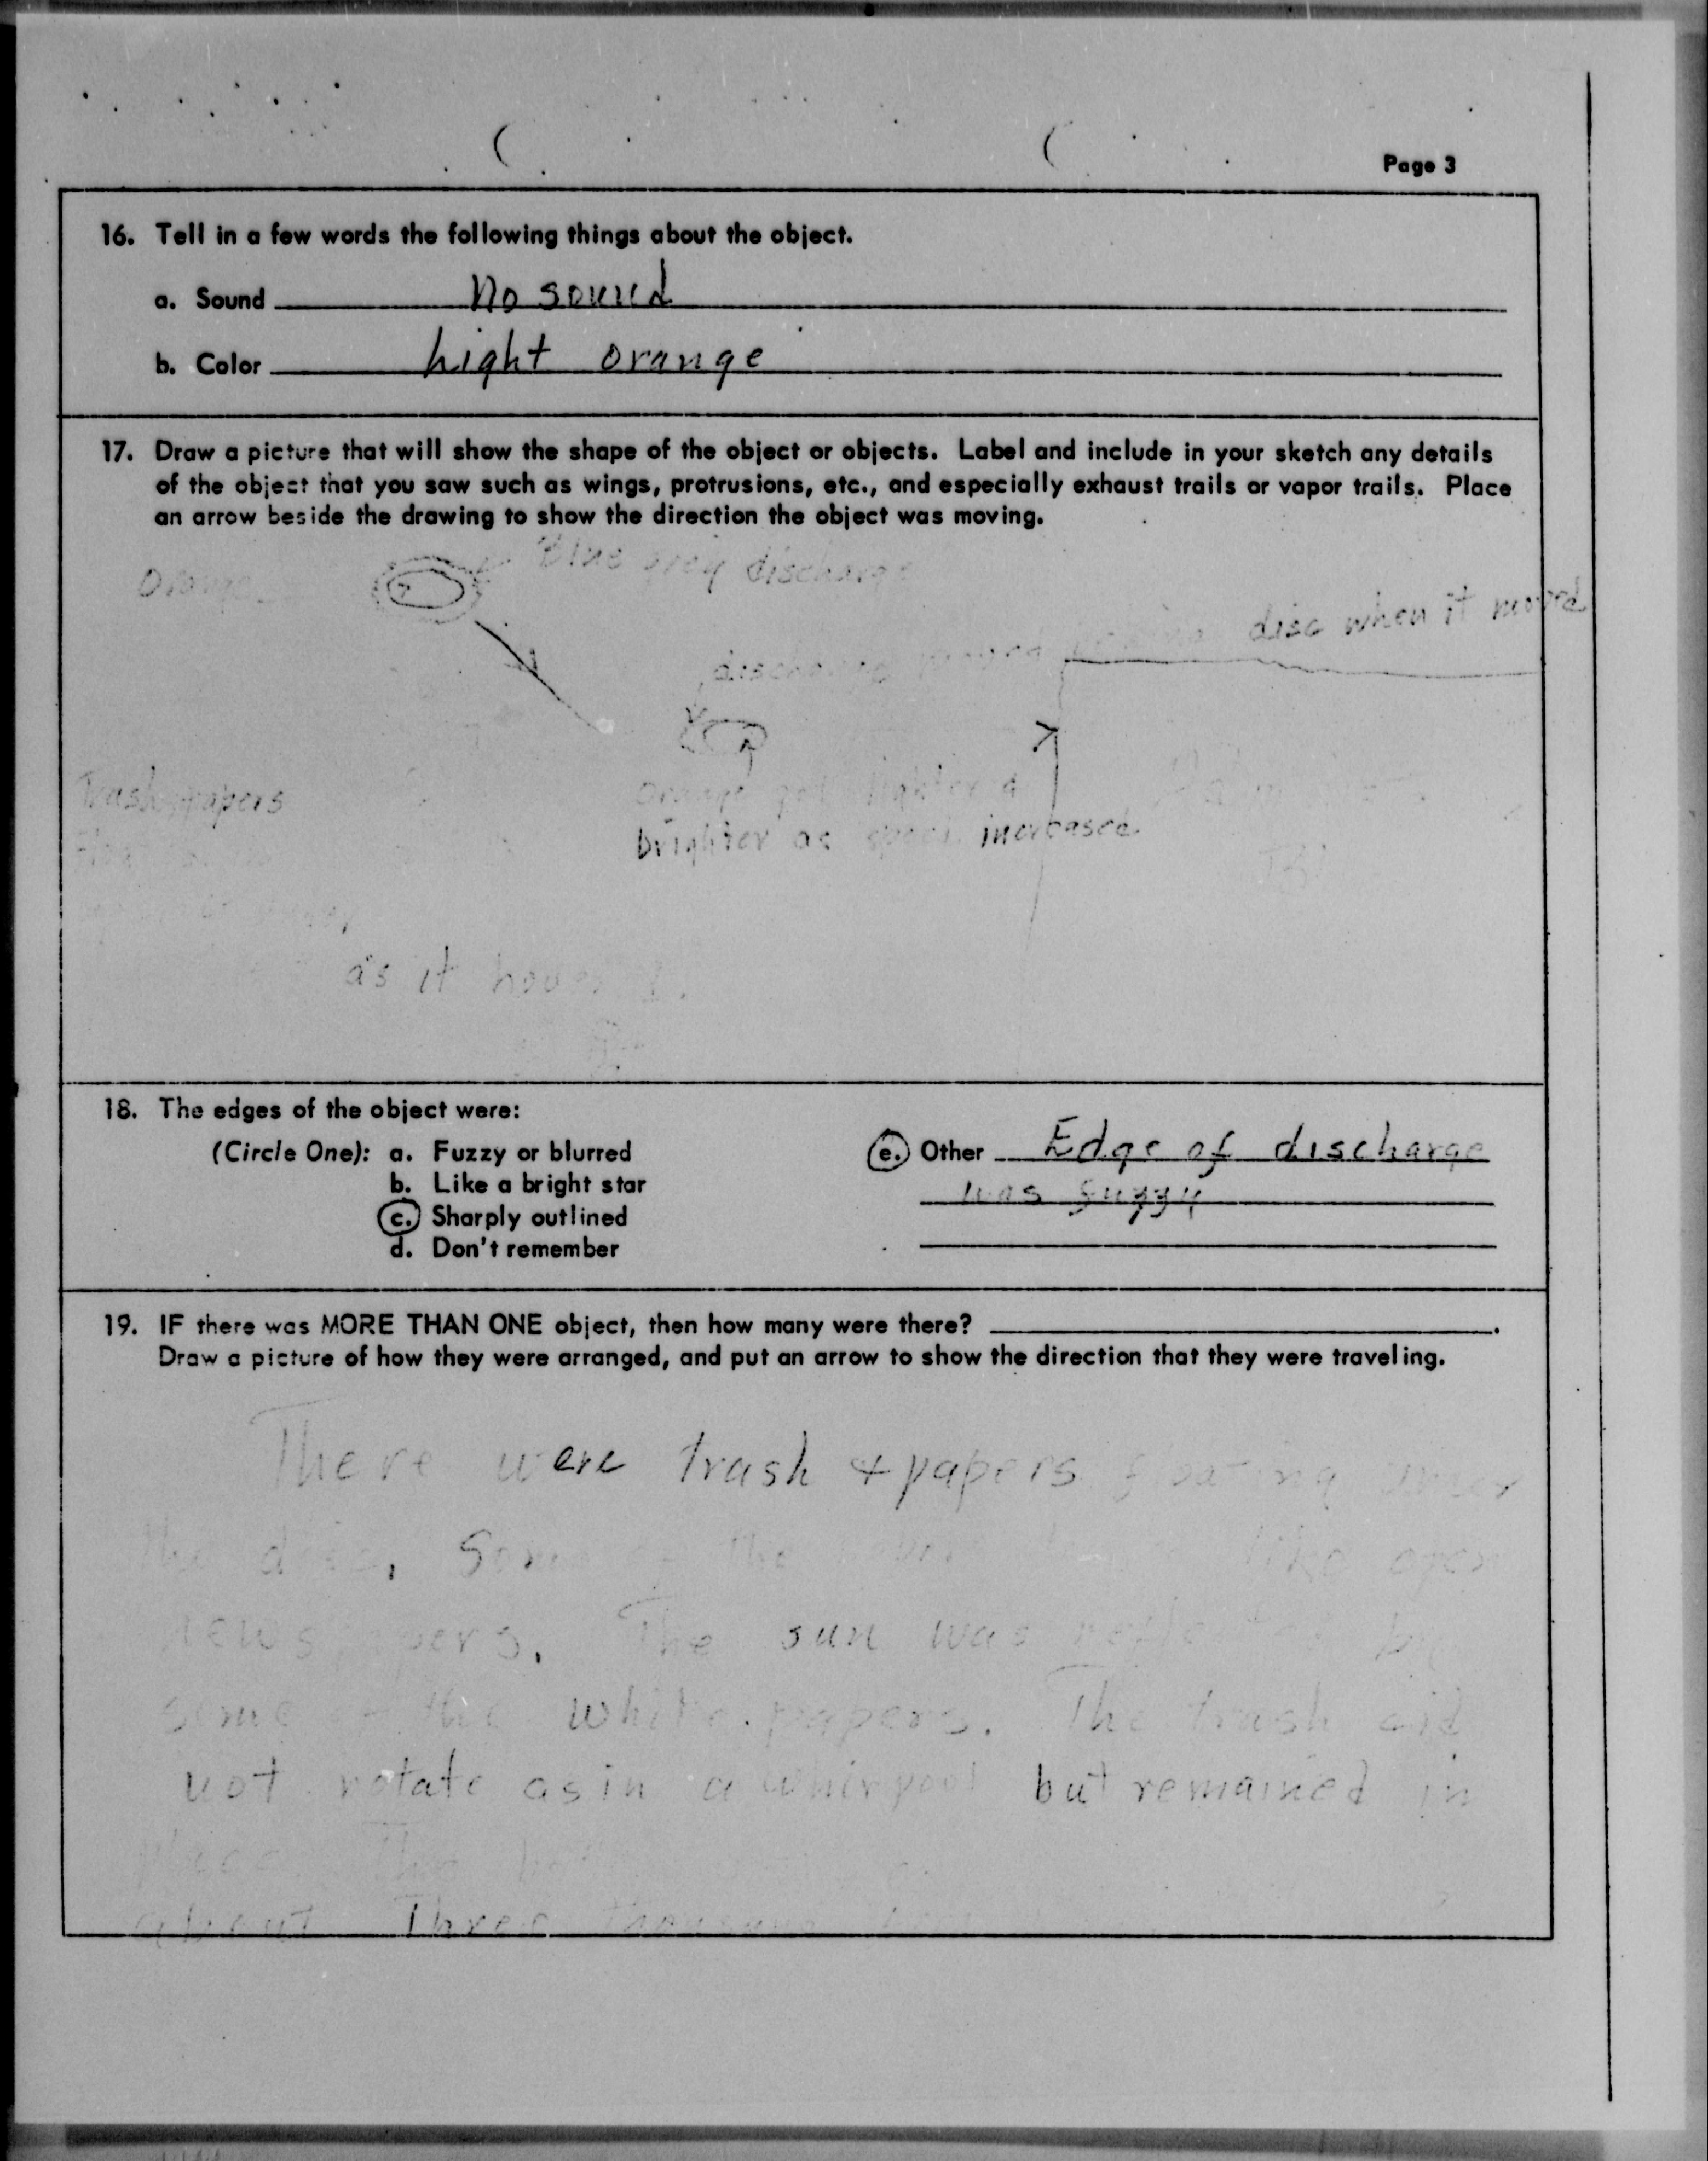 Page 3
16. Tell in a few words the following things about the object.
a. Sound No sound
b. Color Light orange
17. Draw a picture that will show the shape of the object or objects. Label and include in your sketch any details
of the object that you saw such as wings, protrusions, etc., and especially exhaust trails or vapor trails. Place
an arrow beside the drawing to show the direction the object was moving.
Orange
Blue grey discharge
discharge disc when it moved
Trash papers
Orange got lighter &
brighter as speed increased
as it hovered.
18. The edges of the object were:
(Circle One): a. Fuzzy or blurred
b. Like a bright star
c. Sharply outlined
d. Don't remember
e. Other Edge of discharge
was fuzzy
19. IF there was MORE THAN ONE object, then how many were there?
Draw a picture of how they were arranged, and put an arrow to show the direction that they were traveling.
There were trash & papers floating under
the disc, Some the like open
newspapers. The sun was reflected by
some of the white papers. The trash did
not rotate as in a whirpool but remained in
place. The
about Three thousand